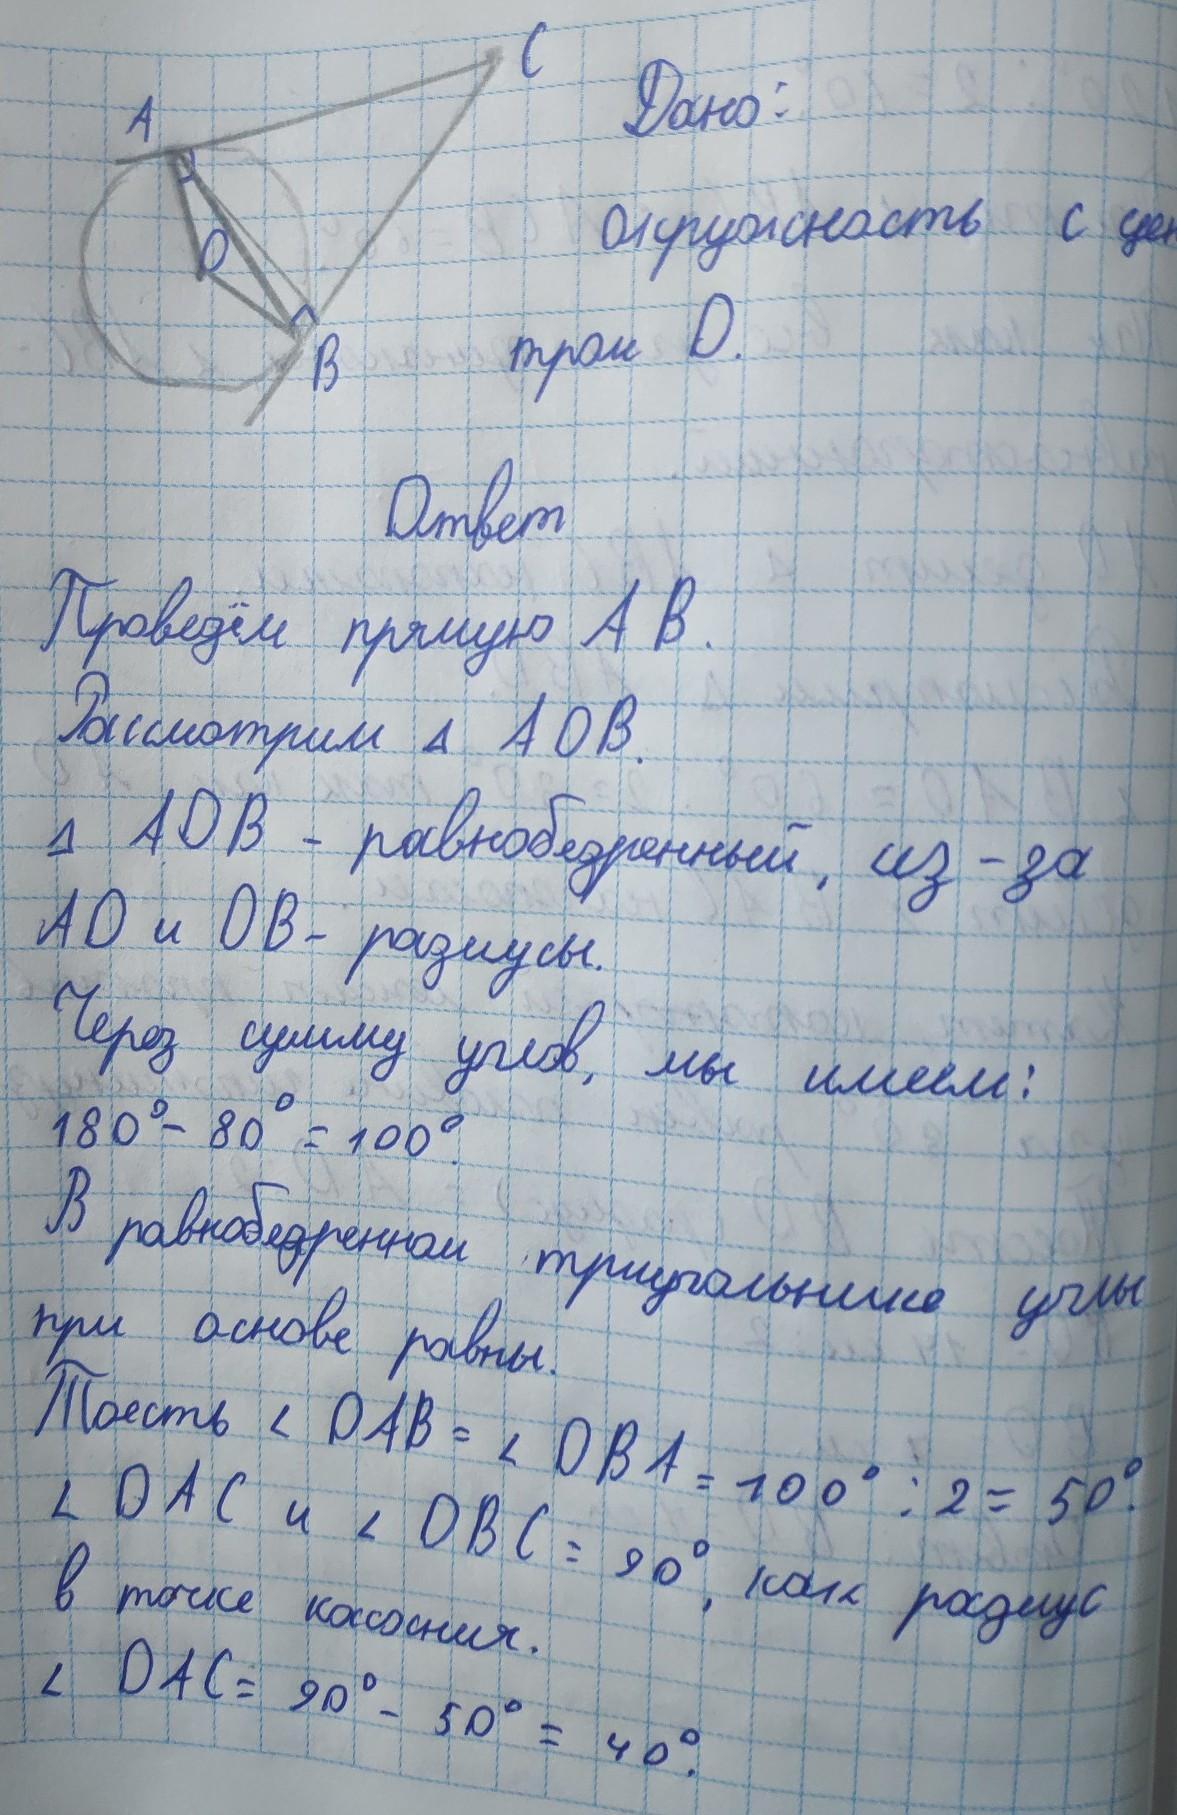 A
C
O
B
Дано:
окружность с цен
тром О.
Ответ
Проведём прямую АВ.
Рассмотрим Δ АОВ.
Δ АОВ - равнобедренный, из-за
АО и ОВ - радиусы.
Через сумму углов, мы имеем:
180° - 80° = 100°.
В равнобедренном триугольнике углы
при основе равны.
Тоесть ∠ ОАВ = ∠ ОВА = 100° : 2 = 50°.
∠ ОАС и ∠ ОВС = 90°, как радиус
в точке касосния.
∠ ОАС = 90° - 50° = 40°.